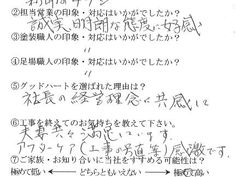 ②担当営業の印象・対応はいかがでしたか？
誠実、明朗な態度に好感
③塗装職人の印象・対応はいかがでしたか？
〃
④足場職人の印象・対応はいかがでしたか？
〃
⑤グッドハートを選ばれた理由は？
社長の経営理念に共感して
⑥工事を終えてのお気持ちを教えて下さい。
夫妻共々満足しています。
アフターケア(工事の写真等)感激です。
⑦ご家族・お知り合いに当社をすすめる可能性は？
極めて低い どちらともいえない 極めて高い